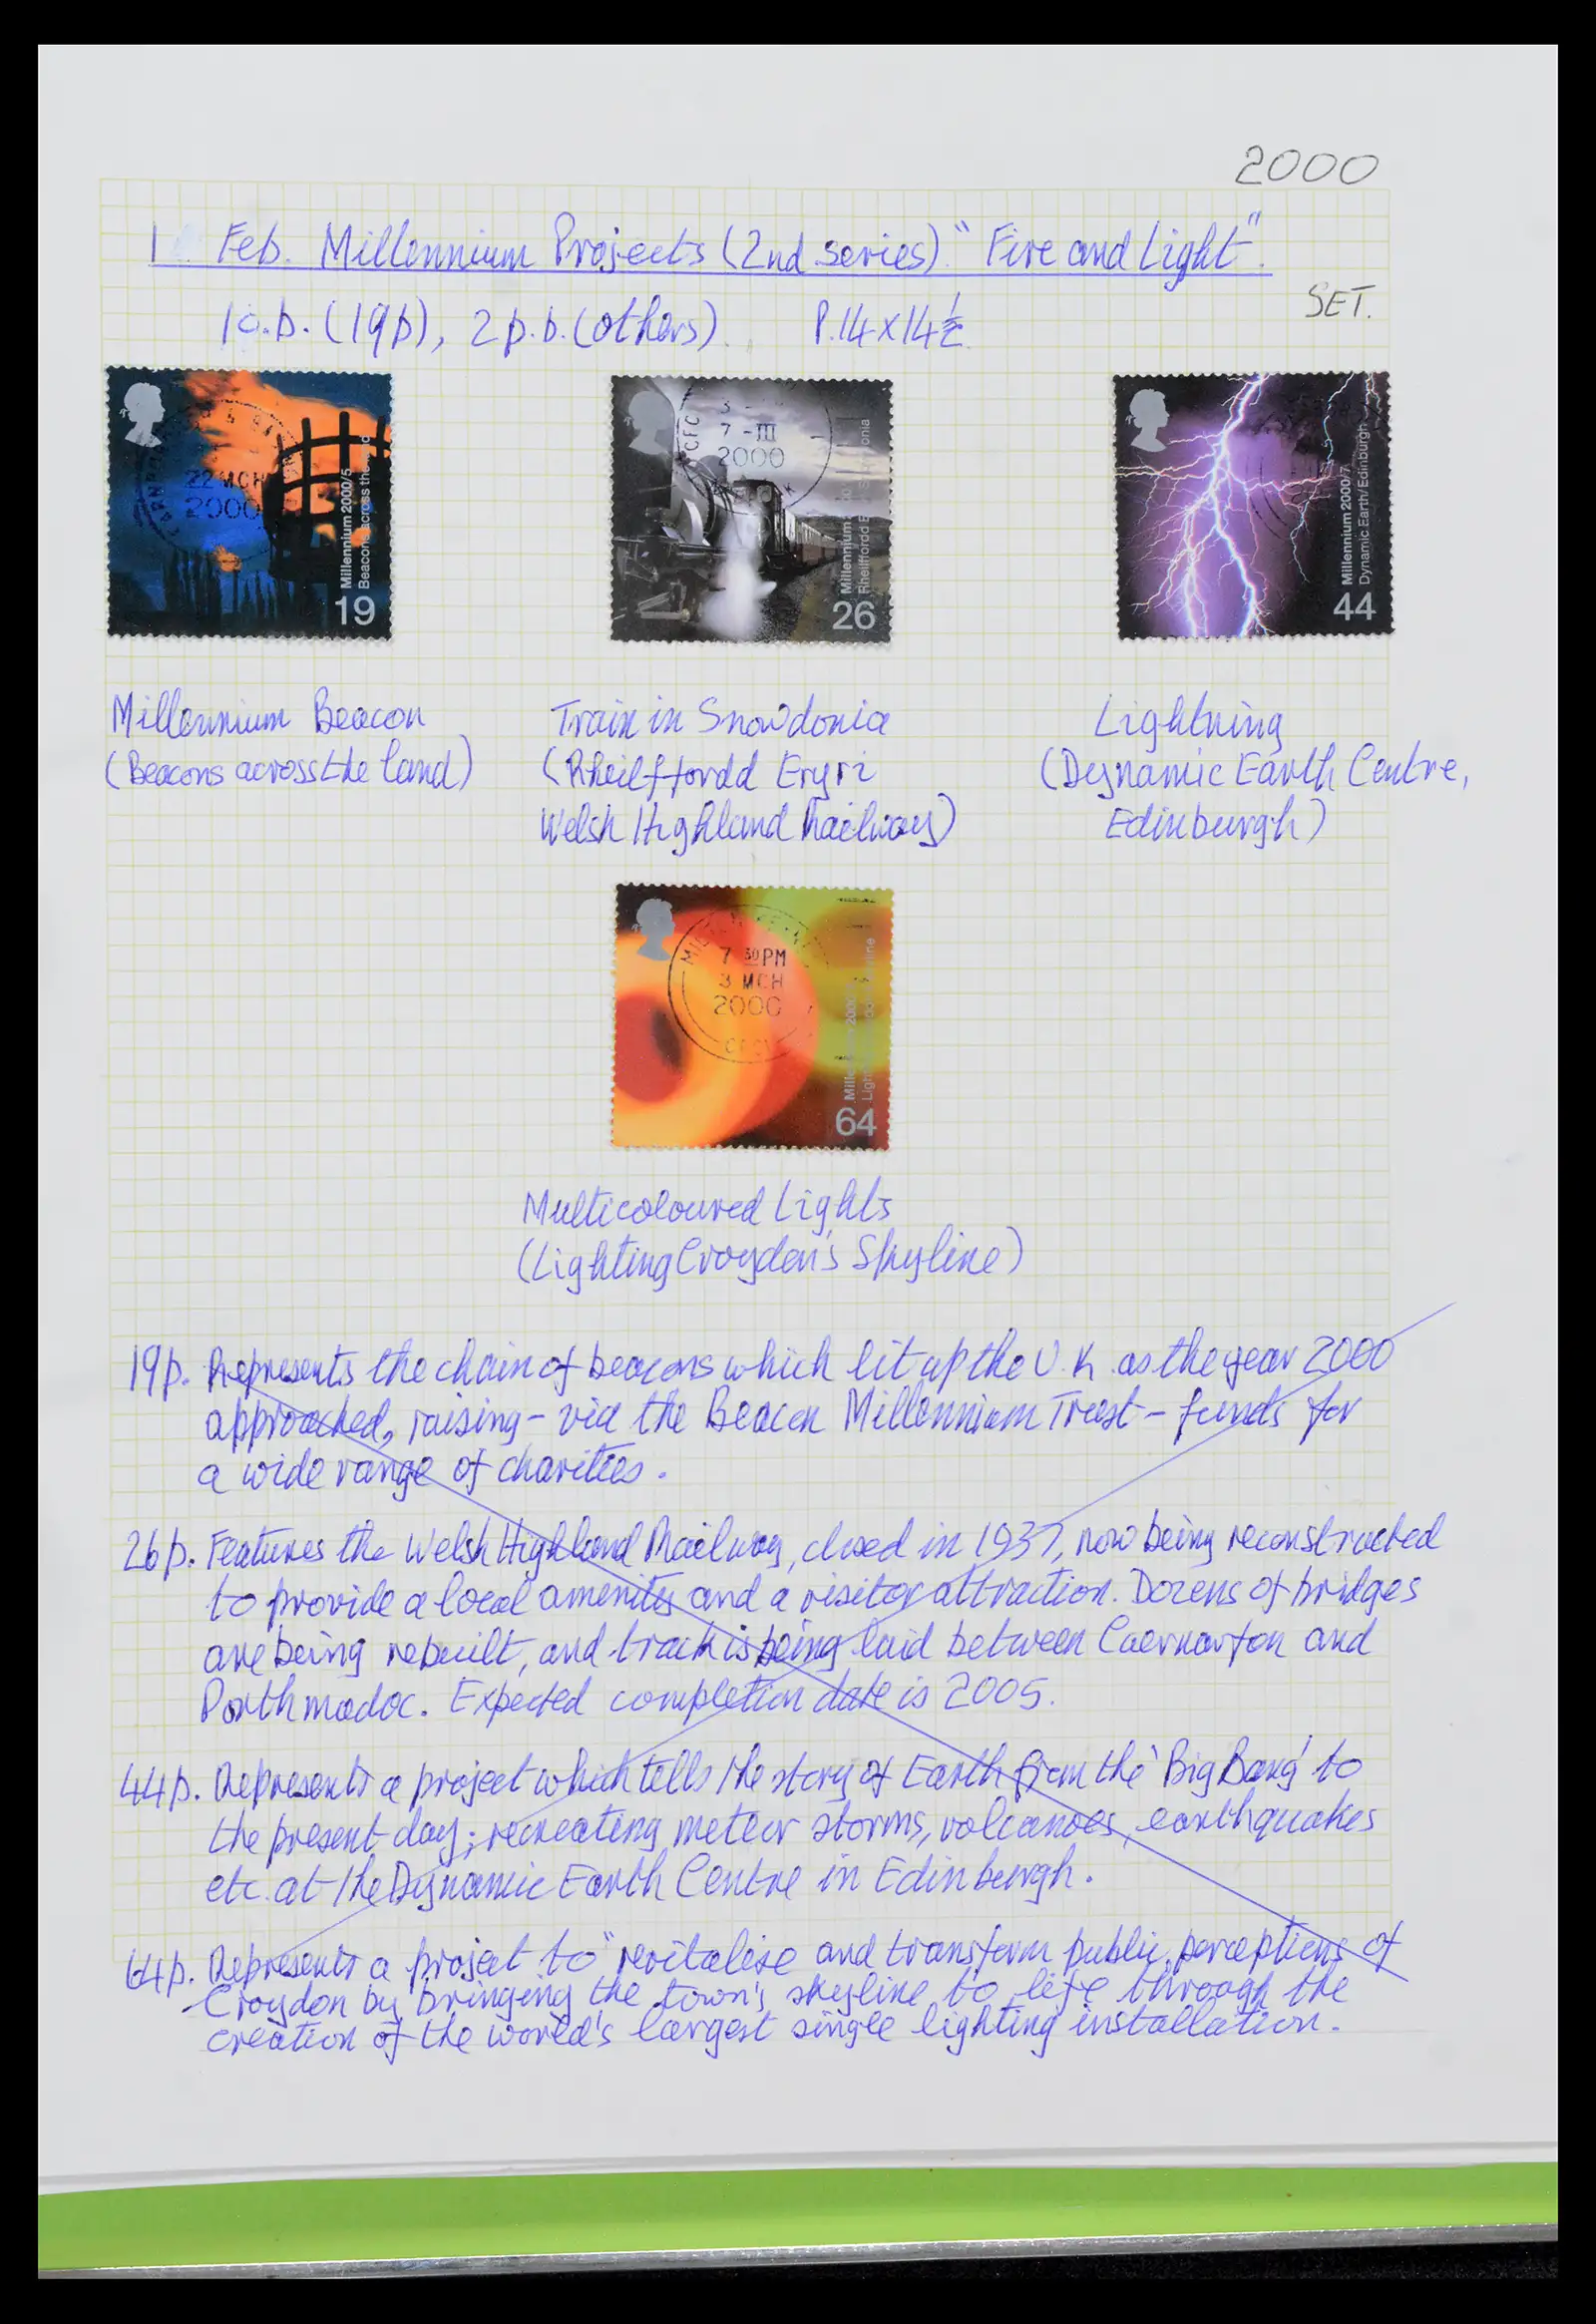 2000
1 Feb. Millennium Projects (2nd series) "Fire and Light".
SET.
1c.b. (19p), 2p.b. (others). P.14x14½
22 MCH
2000
Millennium 2000/5
Beacons across the land
19
CFC
7-III
2000
Millennium
Rheilffordd
26
Millennium 2000/7
Dynamic Earth/Edinburgh
44
Millennium Beacon
(Beacons across the land)
Train in Snowdonia
(Rheilffordd Eryri
Welsh Highland Railway)
Lightning
(Dynamic Earth Centre,
Edinburgh)
7 30PM
3 MCH
2000
64
Multicoloured Lights
(Lighting Croydon's Skyline)
19p. Represents the chain of beacons which lit up the U.K. as the year 2000
approached, raising - via the Beacon Millennium Trust - funds for
a wide range of charities.
26p. Features the Welsh Highland Railway, closed in 1937, now being reconstructed
to provide a local amenity and a visitor attraction. Dozens of bridges
are being rebuilt, and track is being laid between Caernarfon and
Porthmadoc. Expected completion date is 2005.
44p. Represents a project which tells the story of Earth from the 'Big Bang' to
the present day; recreating meteor storms, volcanoes, earthquakes
etc. at the Dynamic Earth Centre in Edinburgh.
64p. Represents a project to "revitalise and transform public perceptions of
Croydon by bringing the town's skyline to life through the
creation of the world's largest single lighting installation.